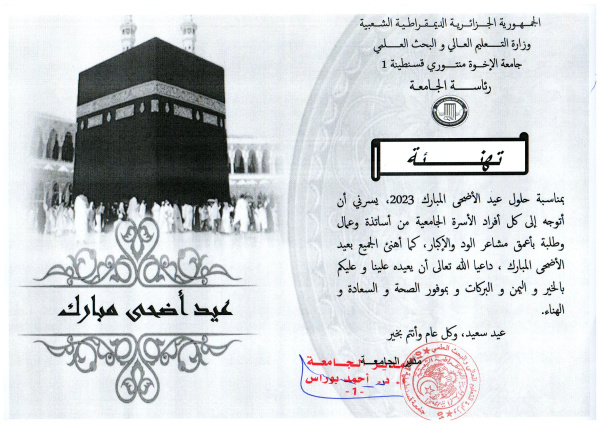 الجمهورية الجزائرية الديمقراطية الشعبية
وزارة التعليم العالي و البحث العلمي
جامعة الإخوة منتوري قسنطينة 1
رئاسة الجامعة
تهنئة
بمناسبة حلول عيد الأضحى المبارك 2023، يسرني أن
أتوجه إلى كل أفراد الأسرة الجامعية من أساتذة وعمال
وطلبة بأعمق مشاعر الود والإكبار، كما أهنئ الجميع بعيد
الأضحى المبارك ، داعيا الله تعالى أن يعيده علينا و عليكم
بالخير و اليمن و البركات و بموفور الصحة و السعادة و
الهناء.
عيد سعيد، وكل عام وأنتم بخير
مدير الجامعة
مدير الجامعة
د. أحمد بوراس
-1-
عيد أضحى مبارك